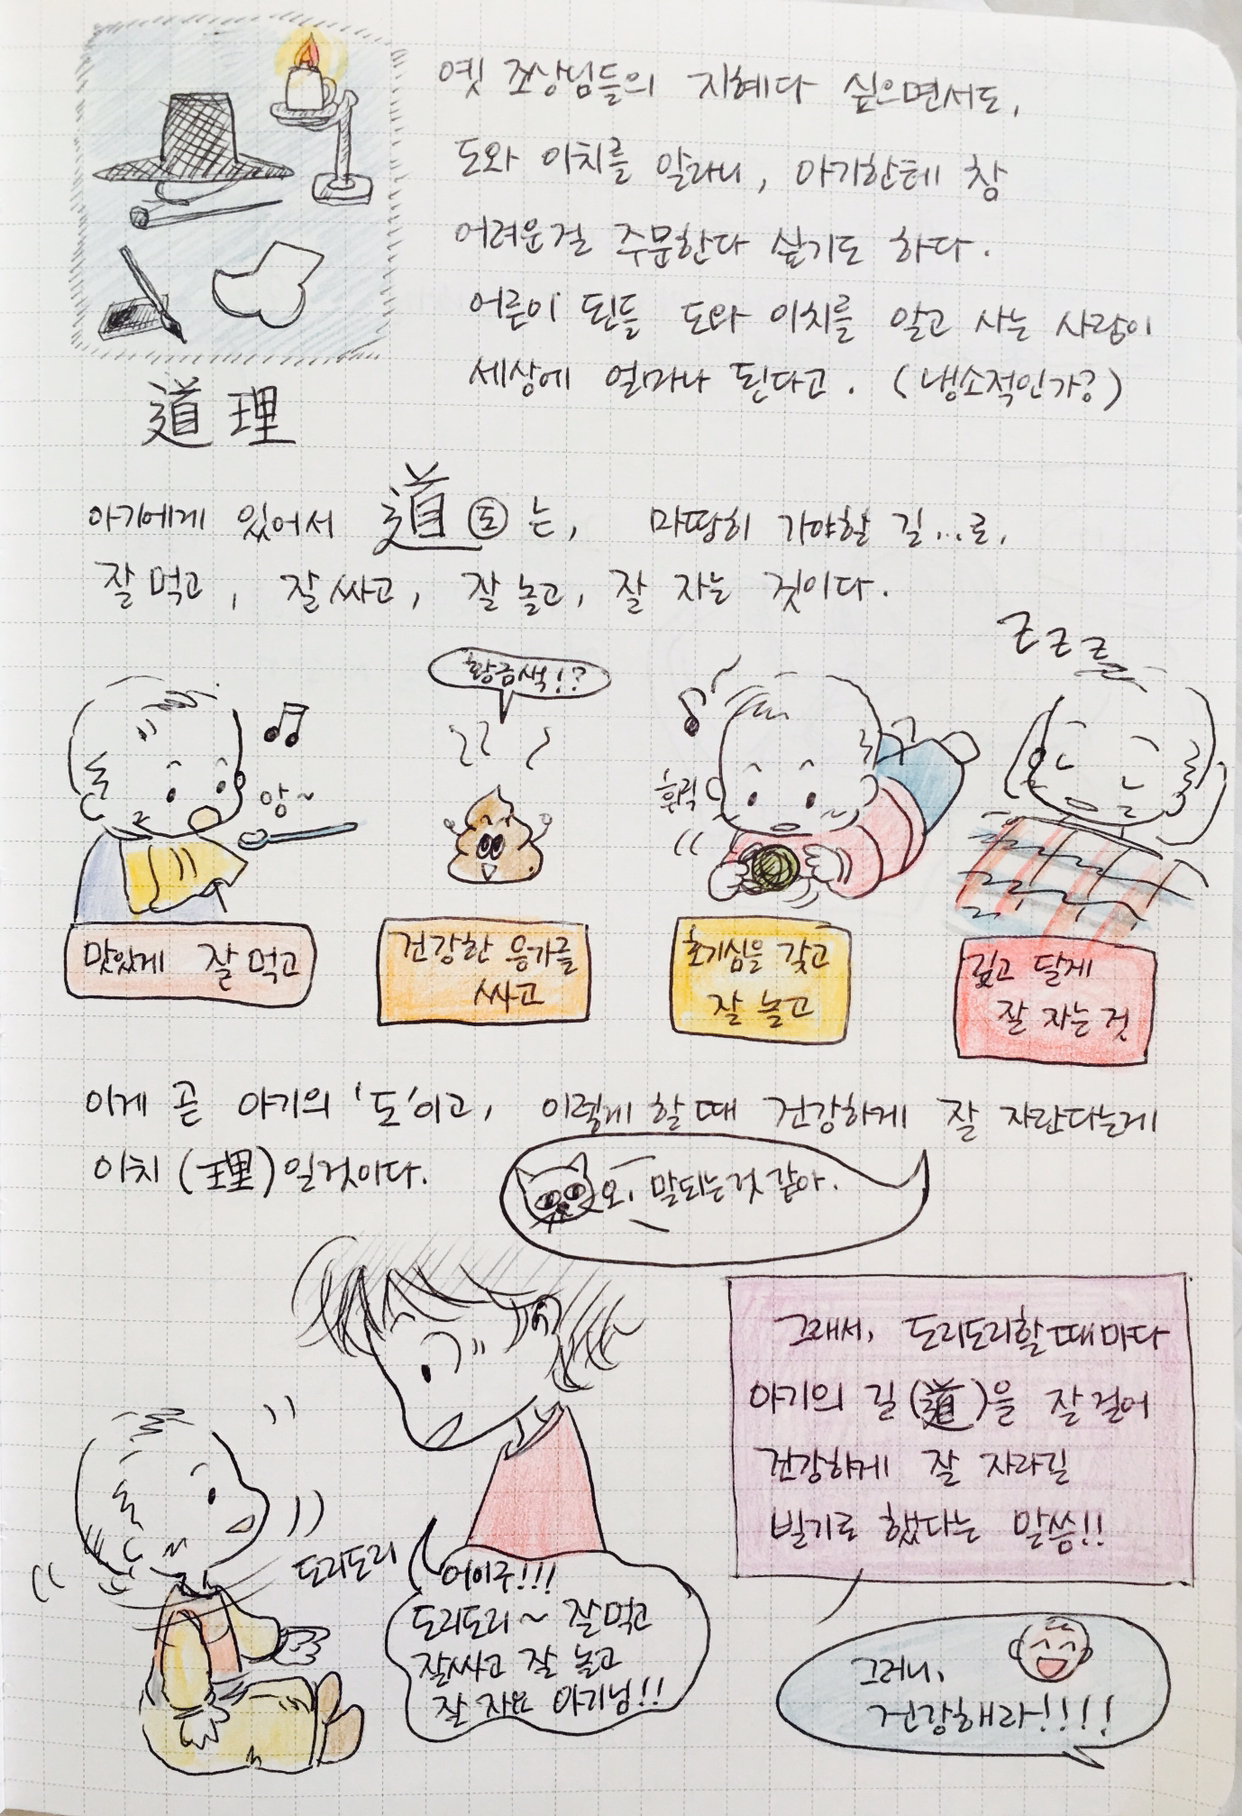 옛 조상님들의 지혜다 싶으면서도,
도와 이치를 알라니, 아기한테 참
어려운걸 주문한다 싶기도 하다.
어른이 된들 도와 이치를 알고 사는 사람이
세상에 얼마나 된다고. (냉소적인가?)
道理
아기에게 있어서 道(도)는, 마땅히 가야할 길...로,
잘 먹고, 잘 싸고, 잘 놀고, 잘 자는 것이다.
zzz
황금색!?
앙~
휘릭
맛있게 잘 먹고
건강한 응가를
싸고
호기심을 갖고
잘 놀고
깊고 달게
잘 자는 것
이게 곧 아기의 '도'이고, 이렇게 할 때 건강하게 잘 자란다는게
이치(理)일것이다.
오, 말되는것 같아.
그래서, 도리도리할 때마다
아기의 길(道)을 잘 걸어
건강하게 잘 자라길
빌기로 했다는 말씀!!
도리도리
어이구!!!
도리도리~ 잘 먹고
잘 싸고 잘 놀고
잘 자요 아기님!!
그러니,
건강해라!!!!